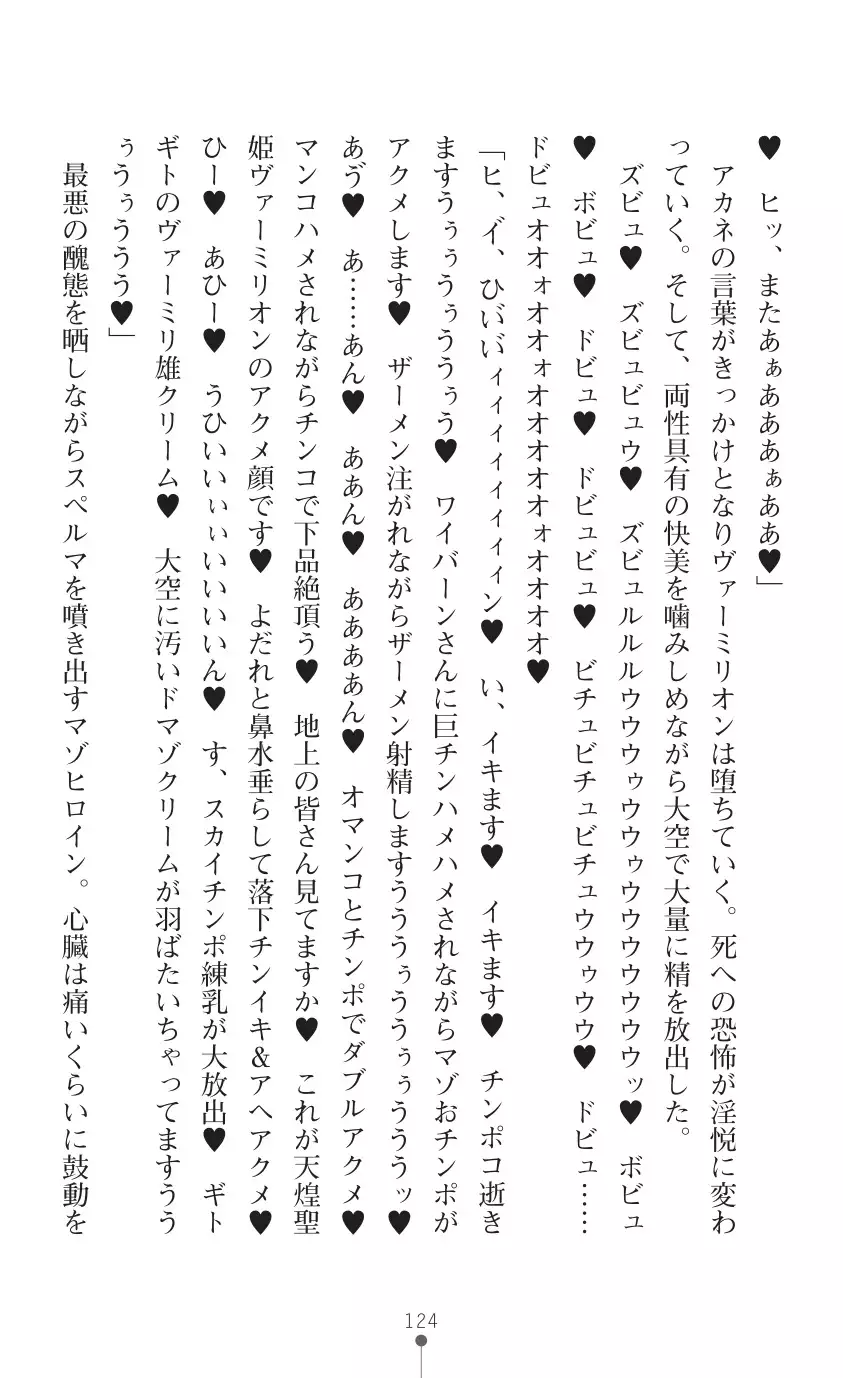 ♥　ヒッ、またあぁあああぁああ♥」
　アカネの言葉がきっかけとなりヴァーミリオンは堕ちていく。死への恐怖が淫悦に変わ
っていく。そして、両性具有の快美を噛みしめながら大空で大量に精を放出した。
　ズビュ♥　ズビュビュウ♥　ズビュルルルウウウゥウウゥウウウウウウウッ♥　ボビュ
♥　ボビュ♥　ドビュ♥　ドビュビュ♥　ビチュビチュビチュウウゥウウ♥　ドビュ……
ドビュオオォオオォオオオオオォオオオオ♥
「ヒ、イ、ひいいィィィィィィィィン♥　い、イキます♥　イキます♥　チンポコ逝き
ますうぅぅうぅううぅう♥　ワイバーンさんに巨チンハメハメされながらマゾおチンポが
アクメします♥　ザーメン注がれながらザーメン射精しますうううぅううぅぅうううッ♥
あゔ♥　あ……あん♥　ああん♥　ああああん♥　オマンコとチンポでダブルアクメ♥
マンコハメされながらチンコで下品絶頂う♥　地上の皆さん見てますか♥　これが天煌聖
姫ヴァーミリオンのアクメ顔です♥　よだれと鼻水垂らして落下チンイキ＆アヘアクメ♥
ひー♥　あひー♥　うひいいぃぃいいいいん♥　す、スカイチンポ練乳が大放出♥　ギト
ギトのヴァーミリ雄クリーム♥　大空に汚いドマゾクリームが羽ばたいちゃってますうう
ぅうぅううう♥」
　最悪の醜態を晒しながらスペルマを噴き出すマゾヒロイン。心臓は痛いくらいに鼓動を
124